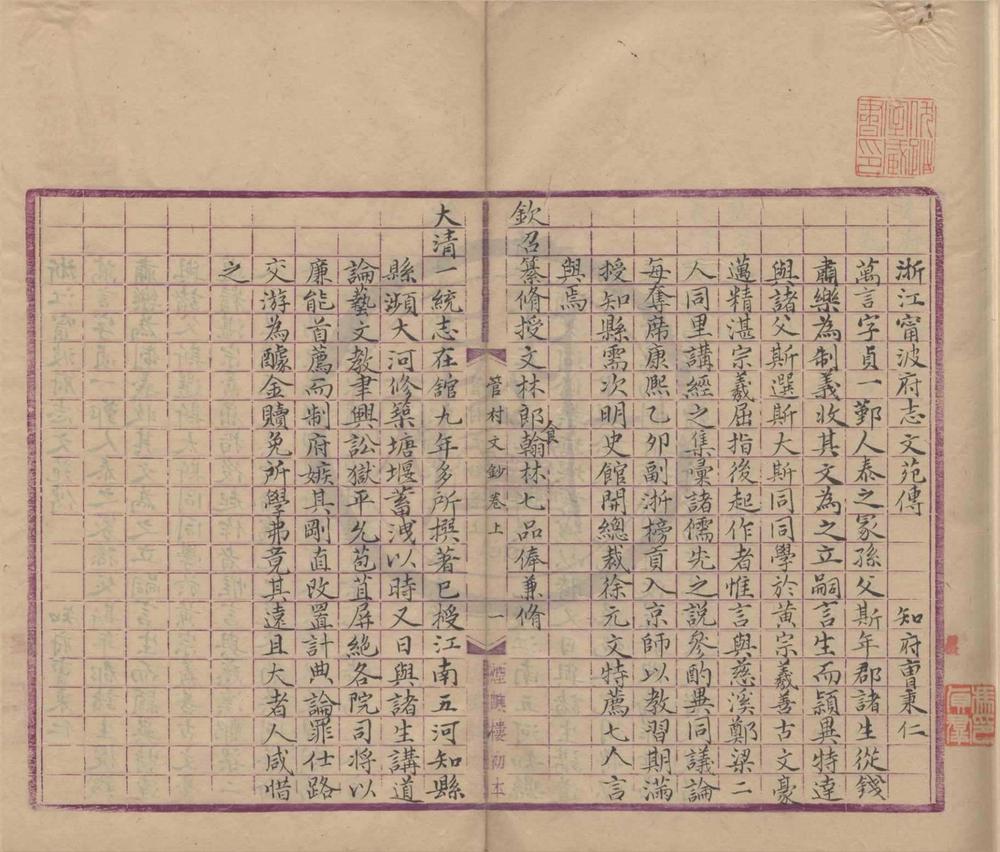 浙江甯波府志文苑傳　知府曹秉仁
萬言字貞一鄞人泰之冢孫父斯年郡諸生從錢
肅樂為制義收其文為之立嗣言生而穎異特達
與諸父斯選斯大斯同同學於黃宗羲善古文豪
邁精湛宗羲屈指後起作者惟言與慈溪鄭梁二
人同里講經之集彙諸儒先之說參酌異同議論
每奪席康熙乙卯副浙榜貢入京師以教習期滿
授知縣需次明史館開總裁徐元文特薦七人言
與焉
欽召纂脩授文林郎翰林七品俸兼脩
食
管村文鈔卷上　一
煙嶼樓初本
大清一統志在舘九年多所撰著已授江南五河知縣
縣瀕大河修築塘堰蓄洩以時又日與諸生講道
論藝文教聿興訟獄平允苞苴屏絕各院司將以
廉能首薦而制府嫉其剛直改置計典論罪仕路
交游為醵金贖免所學弗竟其遠且大者人咸惜
之